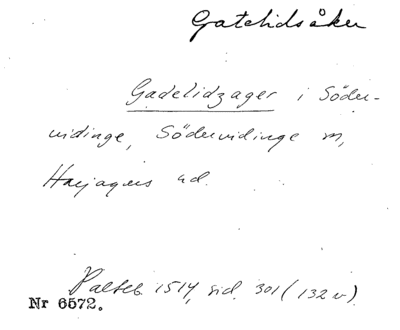 Gatelidsåker
Gadelidzager i Söder-
vidinge, Södervidinge sn,
Harjagers hd.
Palteb. 1514, sid. 301 (132 v).
Nr 6572.